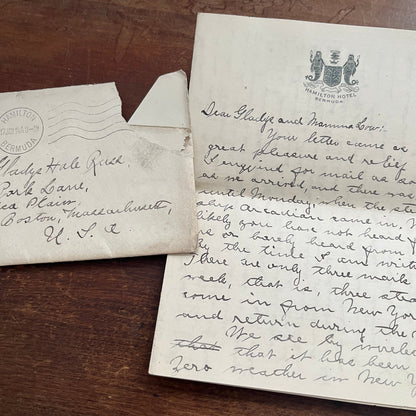 HAMILTON
BERMUDA
Gladys Hale Russ.
Park Lane,
ca Plain,
Boston, Massachusetts,
U. S. A.
HAMILTON HOTEL
BERMUDA
Dear Gladys and Mamma Low:-
Your letter came as
great pleasure and relief
I enquired for mail as so
as we arrived, and there was
until Monday, when the ste
ship Arcadian came in.
likely you have not heard f
me or barely heard from
by the time I am writ
There are only three mails
week, that is, three ste
come in from New Yor
and return during the
We see by wireles
that that it has been
Zero weather in New Y